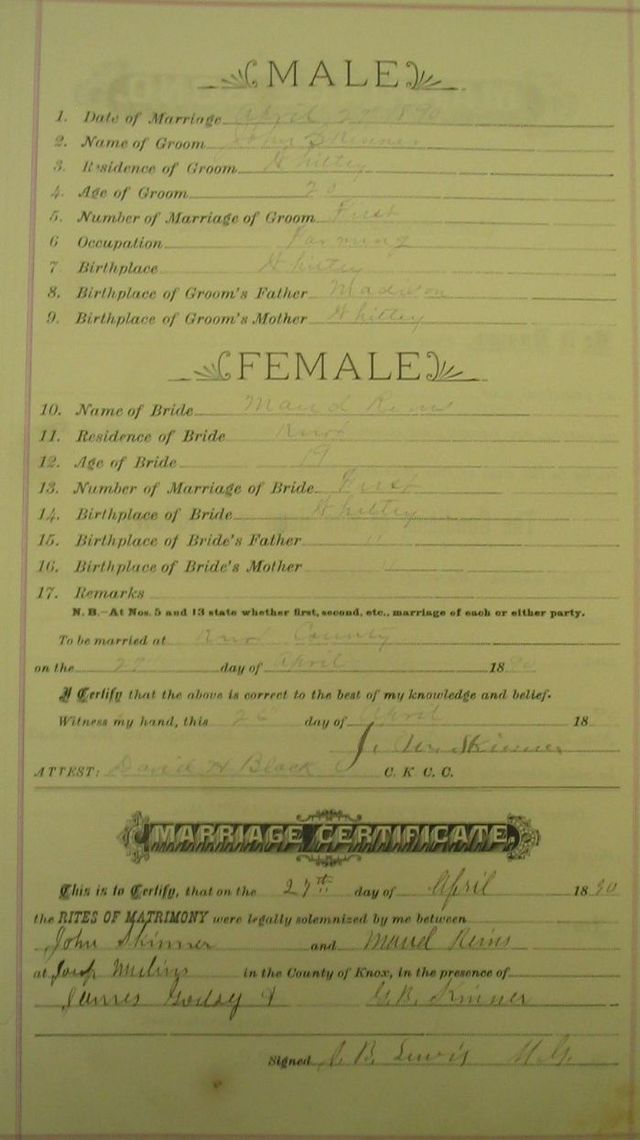 MALE
1. Date of Marriage April 27 1890
2. Name of Groom John Skinner
3. Residence of Groom Whitley
4. Age of Groom 20
5. Number of Marriage of Groom First
6 Occupation Farming
7 Birthplace Whitley
8. Birthplace of Groom's Father Madison
9. Birthplace of Groom's Mother Whitley
FEMALE
10. Name of Bride Maud Reins
11. Residence of Bride Knox
12. Age of Bride 19
13. Number of Marriage of Bride First
14. Birthplace of Bride Whitley
15. Birthplace of Bride's Father "
16. Birthplace of Bride's Mother "
17. Remarks
N. B.—At Nos. 5 and 13 state whether first, second, etc., marriage of each or either party.
To be married at Knox County
on the 27th day of April 1890
I Certify that the above is correct to the best of my knowledge and belief.
Witness my hand, this 26 day of April 18
J. Wm Skinner
ATTEST: David H Black C. K C. C.
MARRIAGE CERTIFICATE.
This is to Certify, that on the 27th day of April 1890
the RITES OF MATRIMONY were legally solemnized by me between
John Skinner and Maud Reins
at in the County of Knox, in the presence of
James & G. B. Skinner
Signed B Lewis M.G.